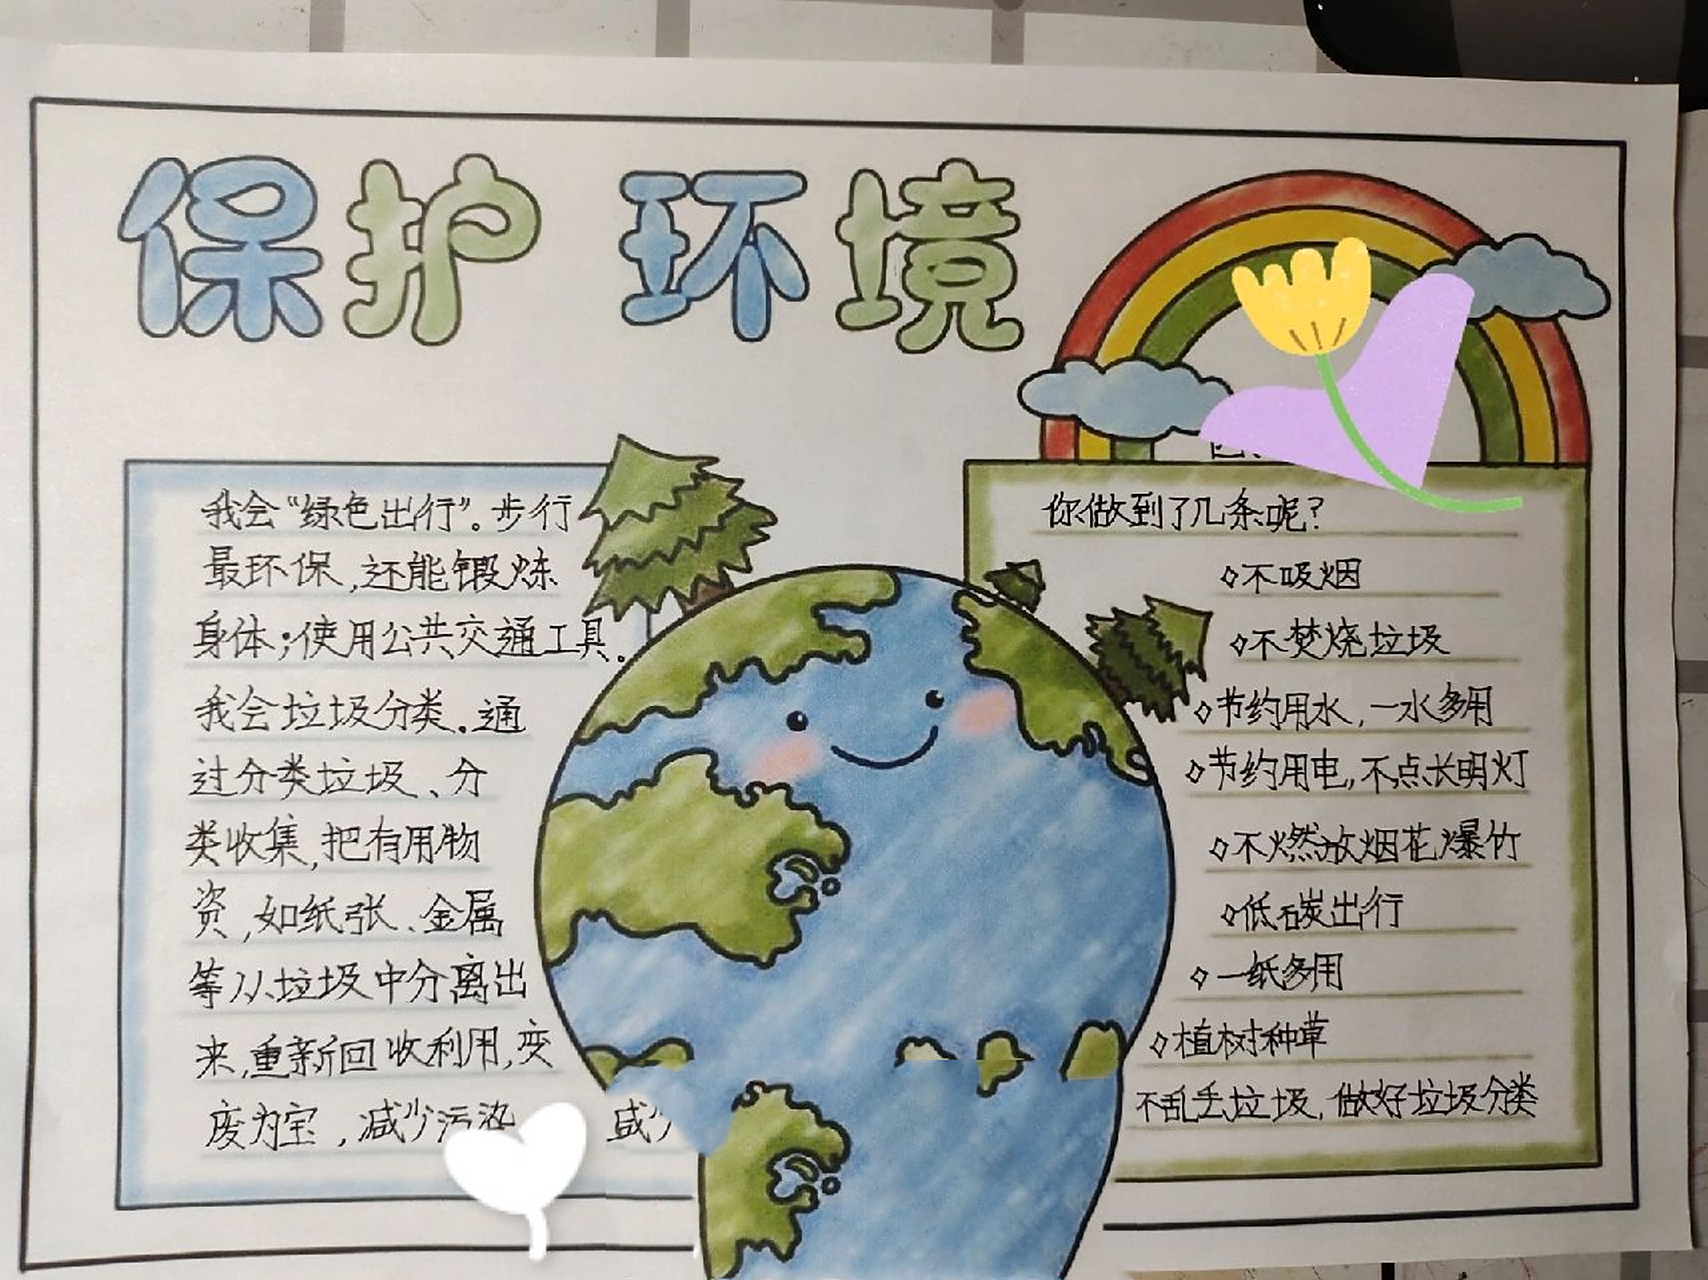 保护环境
我会“绿色出行”。步行
最环保,还能锻炼
身体;使用公共交通工具。
我会垃圾分类.通
过分类垃圾、分
类收集,把有用物
资,如纸张、金属
等从垃圾中分离出
来,重新回收利用,变
废为宝,减少污染
你做到了几条呢?
◇不吸烟
◇不焚烧垃圾
◇节约用水,一水多用
◇节约用电,不点长明灯
◇不燃放烟花爆竹
◇低碳出行
◇一纸多用
◇植树种草
不乱丢垃圾,做好垃圾分类